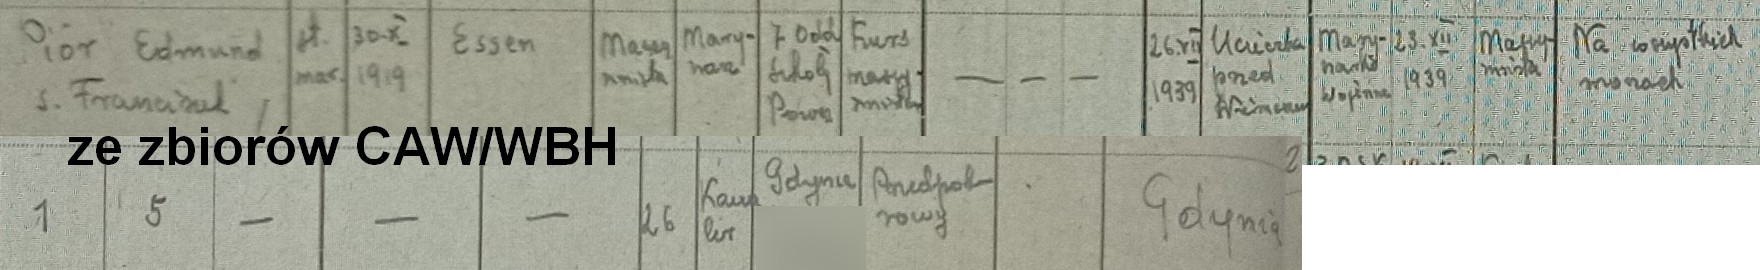 Piór Edmund
s. Franciszek
st.
mar.
30.X
1919
Essen
Maszy
nista
Mary-
narz
7 Odd
Szkoły
Pows
Kurs
maszy-
nistów
— — —
26.XII
1939
Ucieczka
przed
Niemcami
Mary-
narka
wojenna
23.XII
1939
Maszy-
nista
Na wszystkich
morzach
ze zbiorów CAW/WBH
1
5
—
—
—
26
Kawa
ler
Gdynia
Przedpob-
rowy
Gdynia
2